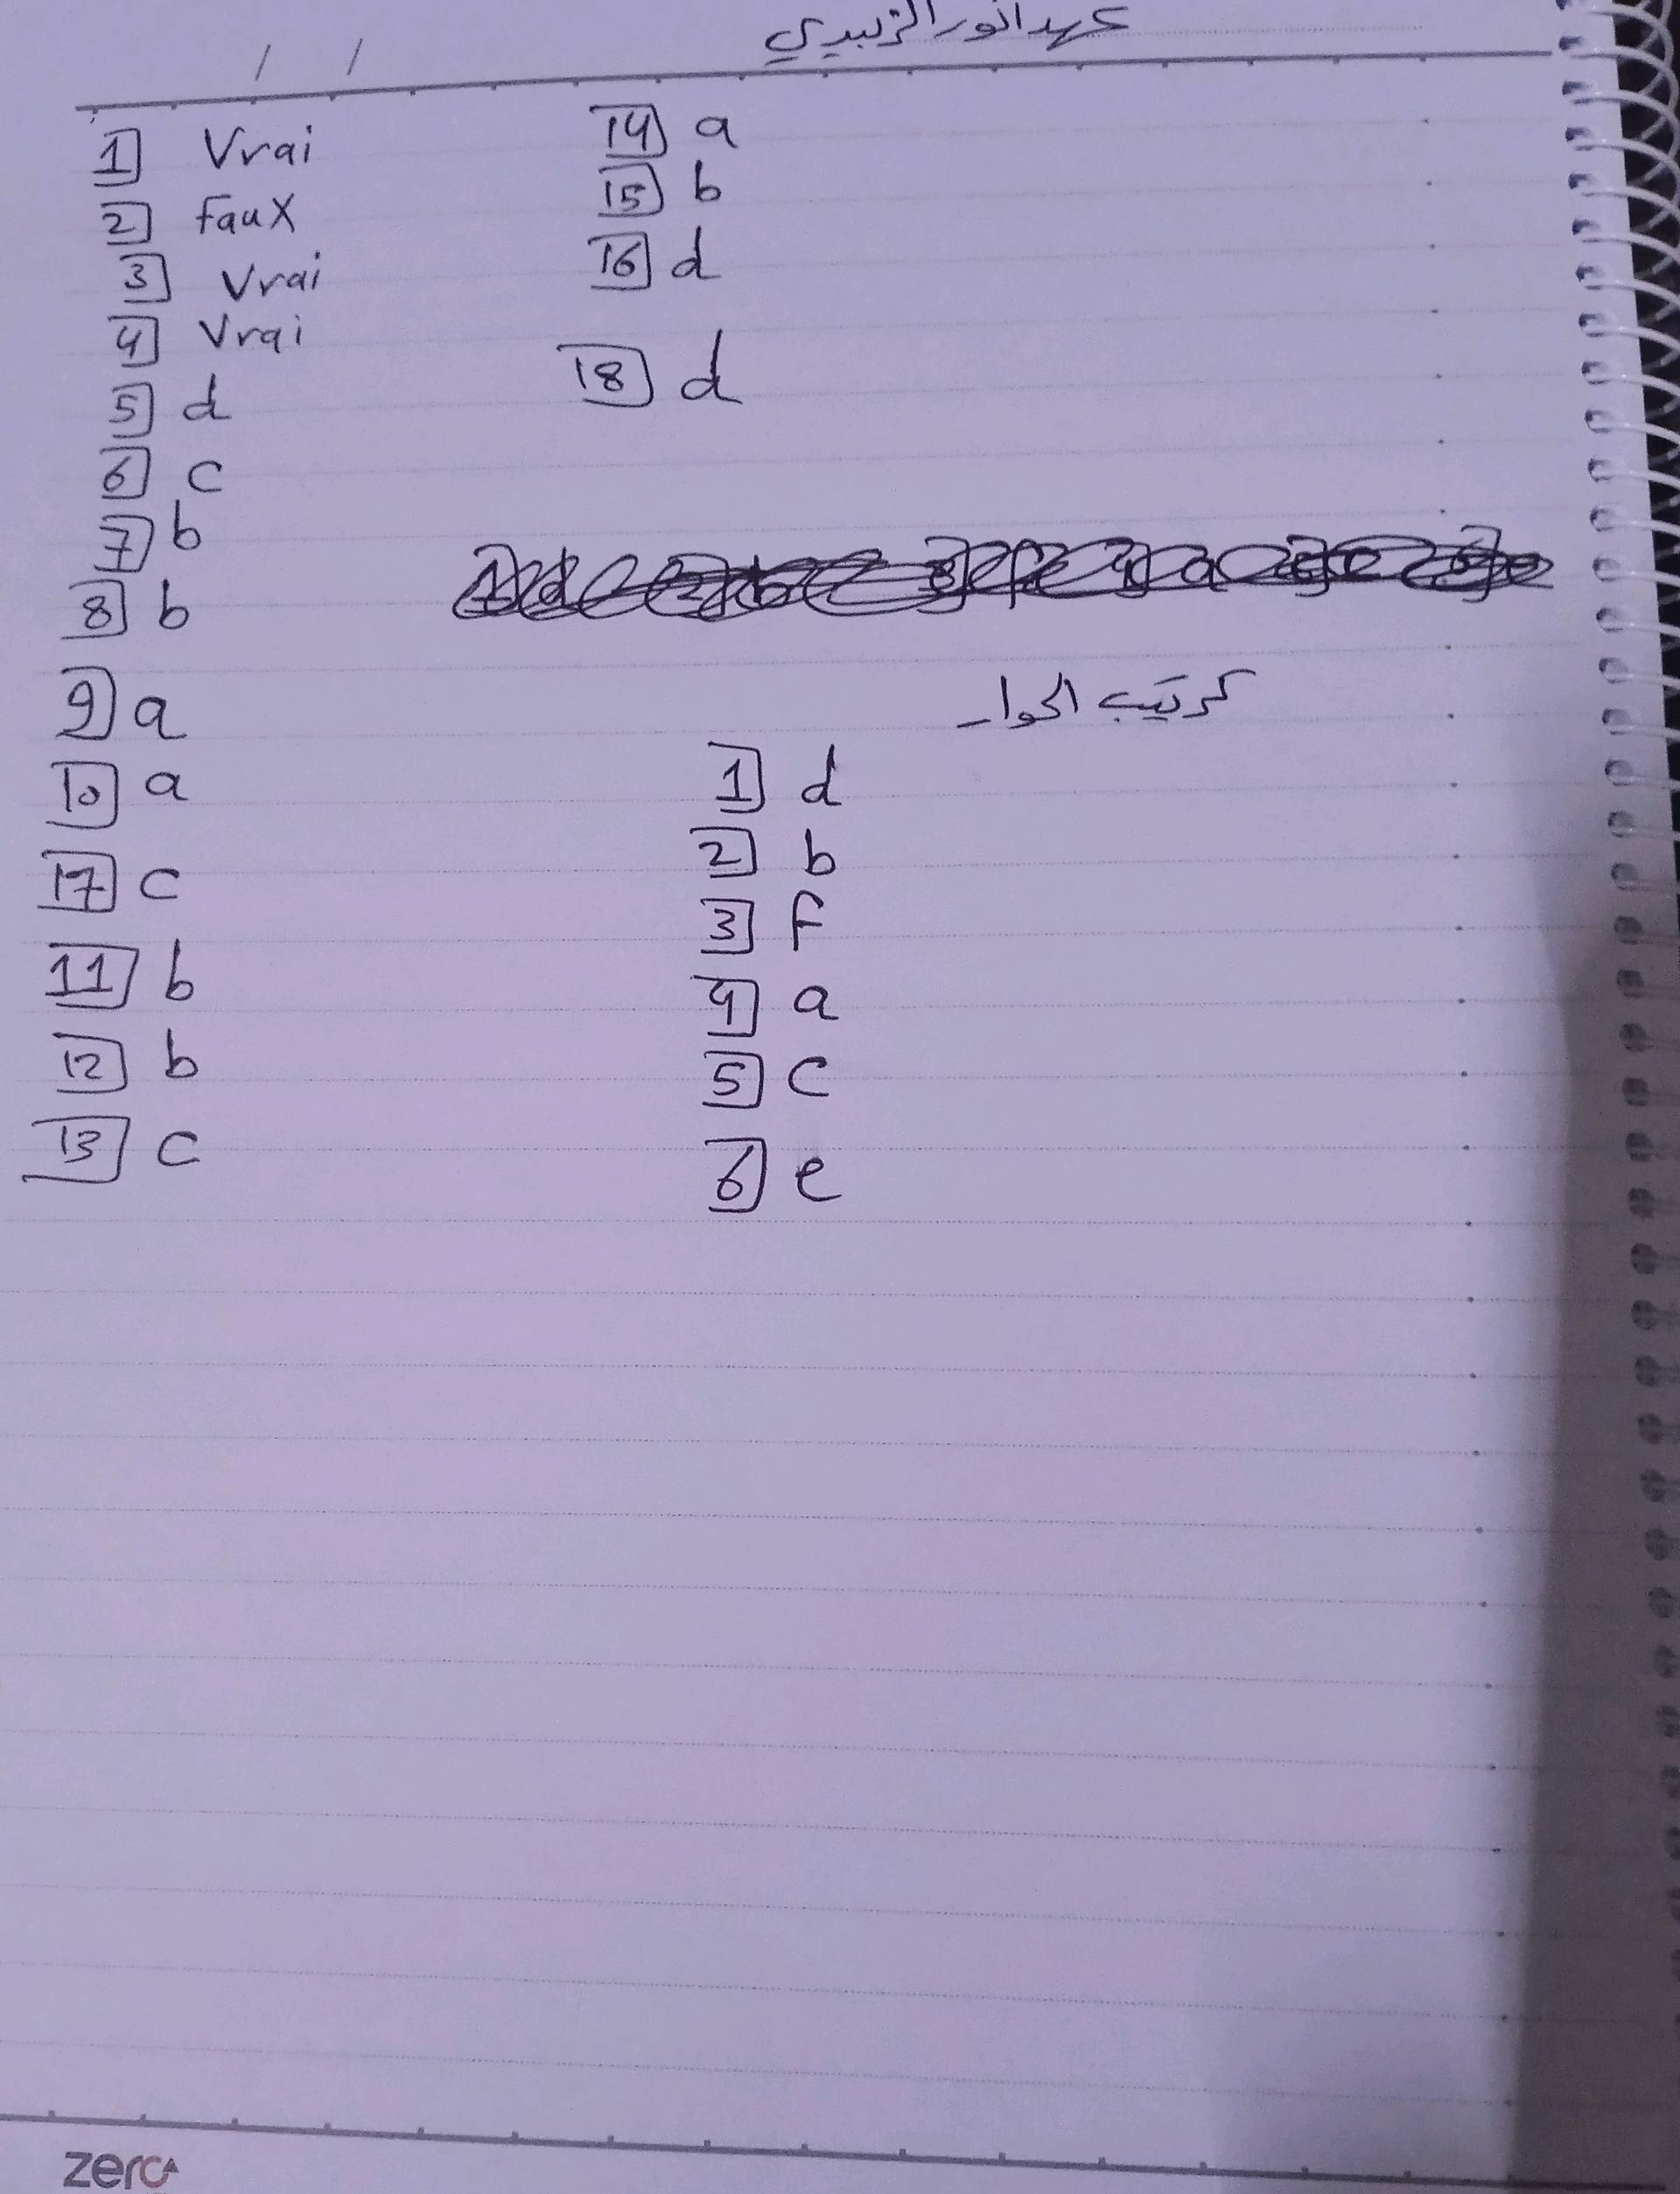 عهد انور الزبيدي
/ /
1 Vrai
2 Faux
3 Vrai
4 Vrai
5 d
6 c
7 b
8 b
9 a
10 a
17 c
11 b
12 b
13 c
14 a
15 b
16 d
18 d
ترتيب الحوار
1 d
2 b
3 F
4 a
5 c
6 e
zero